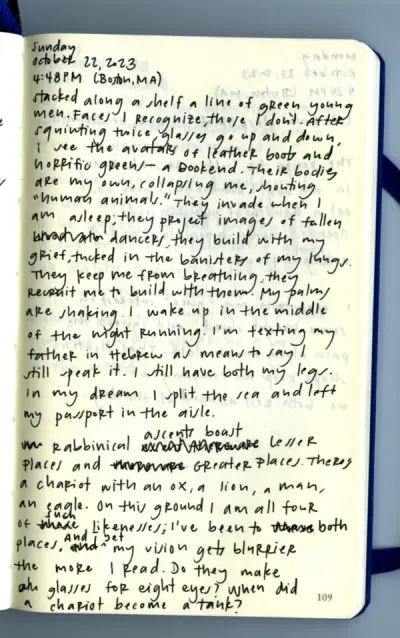 Sunday
October 22, 2023
4:48PM (Boston, MA)
Stacked along a shelf a line of green young
men. Faces I recognize, those I don't. After
squinting twice, glasses go up and down,
I see the avatars of leather boots and
horrific greens — a Bookend. Their bodies
are my own, collapsing me, shouting
"human animals." They invade when I
am asleep; they project images of fallen
dancers, they build with my
grief, tucked in the banisters of my lungs.
They keep me from breathing, they
recruit me to build with them. My palms
are shaking. I wake up in the middle
of the night running. I'm texting my
father in Hebrew as means to say I
still speak it. I still have both my legs.
In my dream I split the sea and left
my passport in the aisle.
ascents boast
rabbinical Lesser
places and Greater places. Theres
a chariot with an ox, a lion, a man,
an eagle. On this ground I am all four
such
of likenesses; I've been to both
And I bet
places, my vision gets blurrier
the more I read. Do they make
glasses for eight eyes? When did
a chariot become a tank?
109